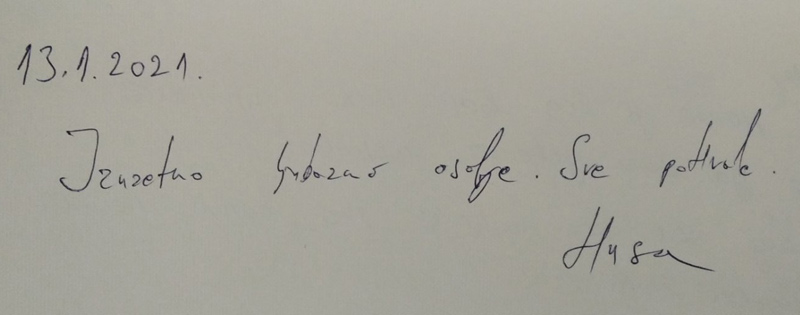 13.1.2021.
Izuzetno ljubazno osoblje. Sve pohvale.
Husa